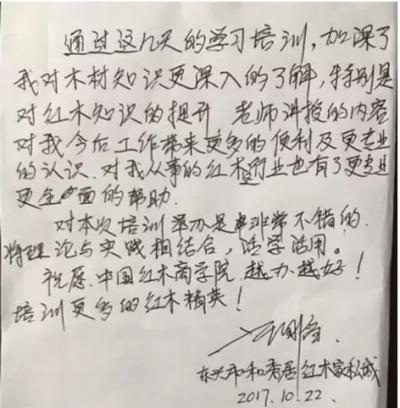 通过这几天的学习培训,加深了
我对木材知识更深入的了解,特别是
对红木知识的提升 老师讲授的内容
对我今后工作带来更多的便利及更专业
的认识.对我从事的红木行业也有了更专业
更全面的帮助.
对本次培训举办是非常不错的.
将理论与实践相结合,活学活用。
祝愿.中国红木商学院.越办越好!
培训更多的红木精英!
东兴市和春居红木家私城
2017.10.22.